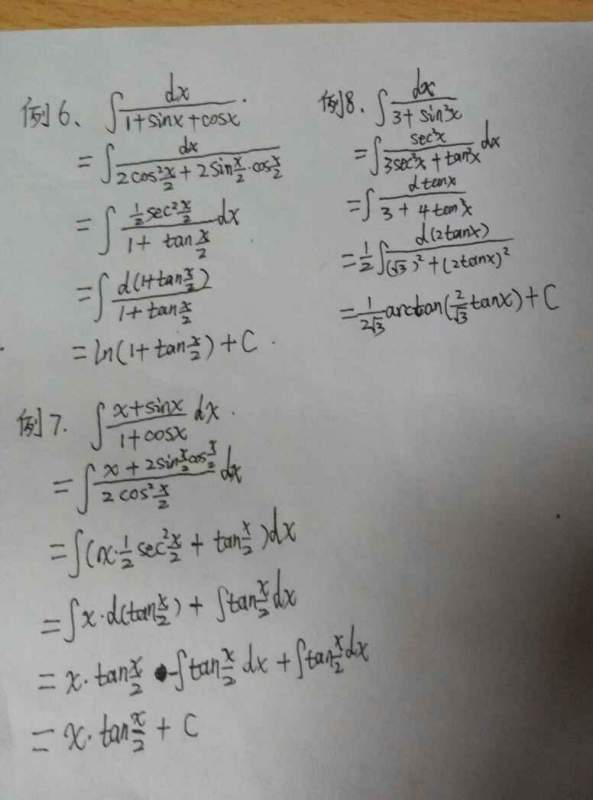 例6、∫dx/(1+sinx+cosx).
=∫dx/(2cos²x/2+2sinx/2·cosx/2)
=∫(1/2sec²x/2)/(1+tanx/2)dx
=∫d(1+tanx/2)/(1+tanx/2)
=ln(1+tanx/2)+C.
例8、∫dx/(3+sin²x)
=∫sec²x/(3sec²x+tan²x)dx
=∫dtanx/(3+4tan²x)
=1/2∫d(2tanx)/((√3)²+(2tanx)²)
=1/(2√3)arctan(2/√3tanx)+C
例7.∫(x+sinx)/(1+cosx)dx.
=∫(x+2sinx/2cosx/2)/(2cos²x/2)dx
=∫(x·1/2sec²x/2+tanx/2)dx
=∫x·d(tanx/2)+∫tanx/2dx
=x·tanx/2-∫tanx/2dx+∫tanx/2dx
=x·tanx/2+C